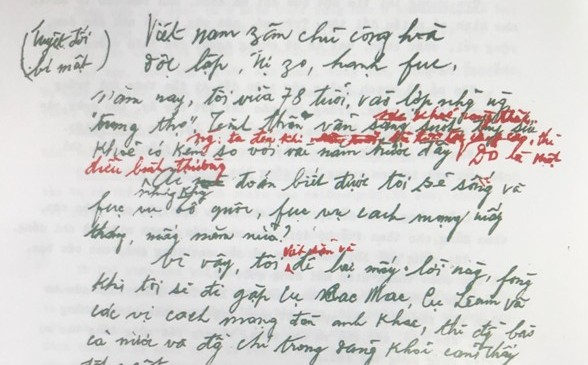 (Tuyệt đối
bí mật)
Việt nam zân chủ cộng hoà
độc lập, tự zo, hạnh fuc.
Năm nay, tôi vừa 78 tuổi, vào lớp những ng
"trung thọ". Tinh thần vẫn sáng suốt, tuy sức
khoẻ có kém so với vài năm trước đây. Đó là một
điều bình thường
đoán biết được tôi sẽ sống và
fục vụ tổ quốc, fục vụ cách mạng mấy
tháng, mấy năm nữa?
Vì vậy, tôi để lại mấy lời này, fòng
khi tôi sẽ đi gặp cụ Các Mác, Cụ Lênin và
các vị cách mạng đàn anh khác, thì đg bào
cả nước và đg chí trong đảng khỏi cảm thấy